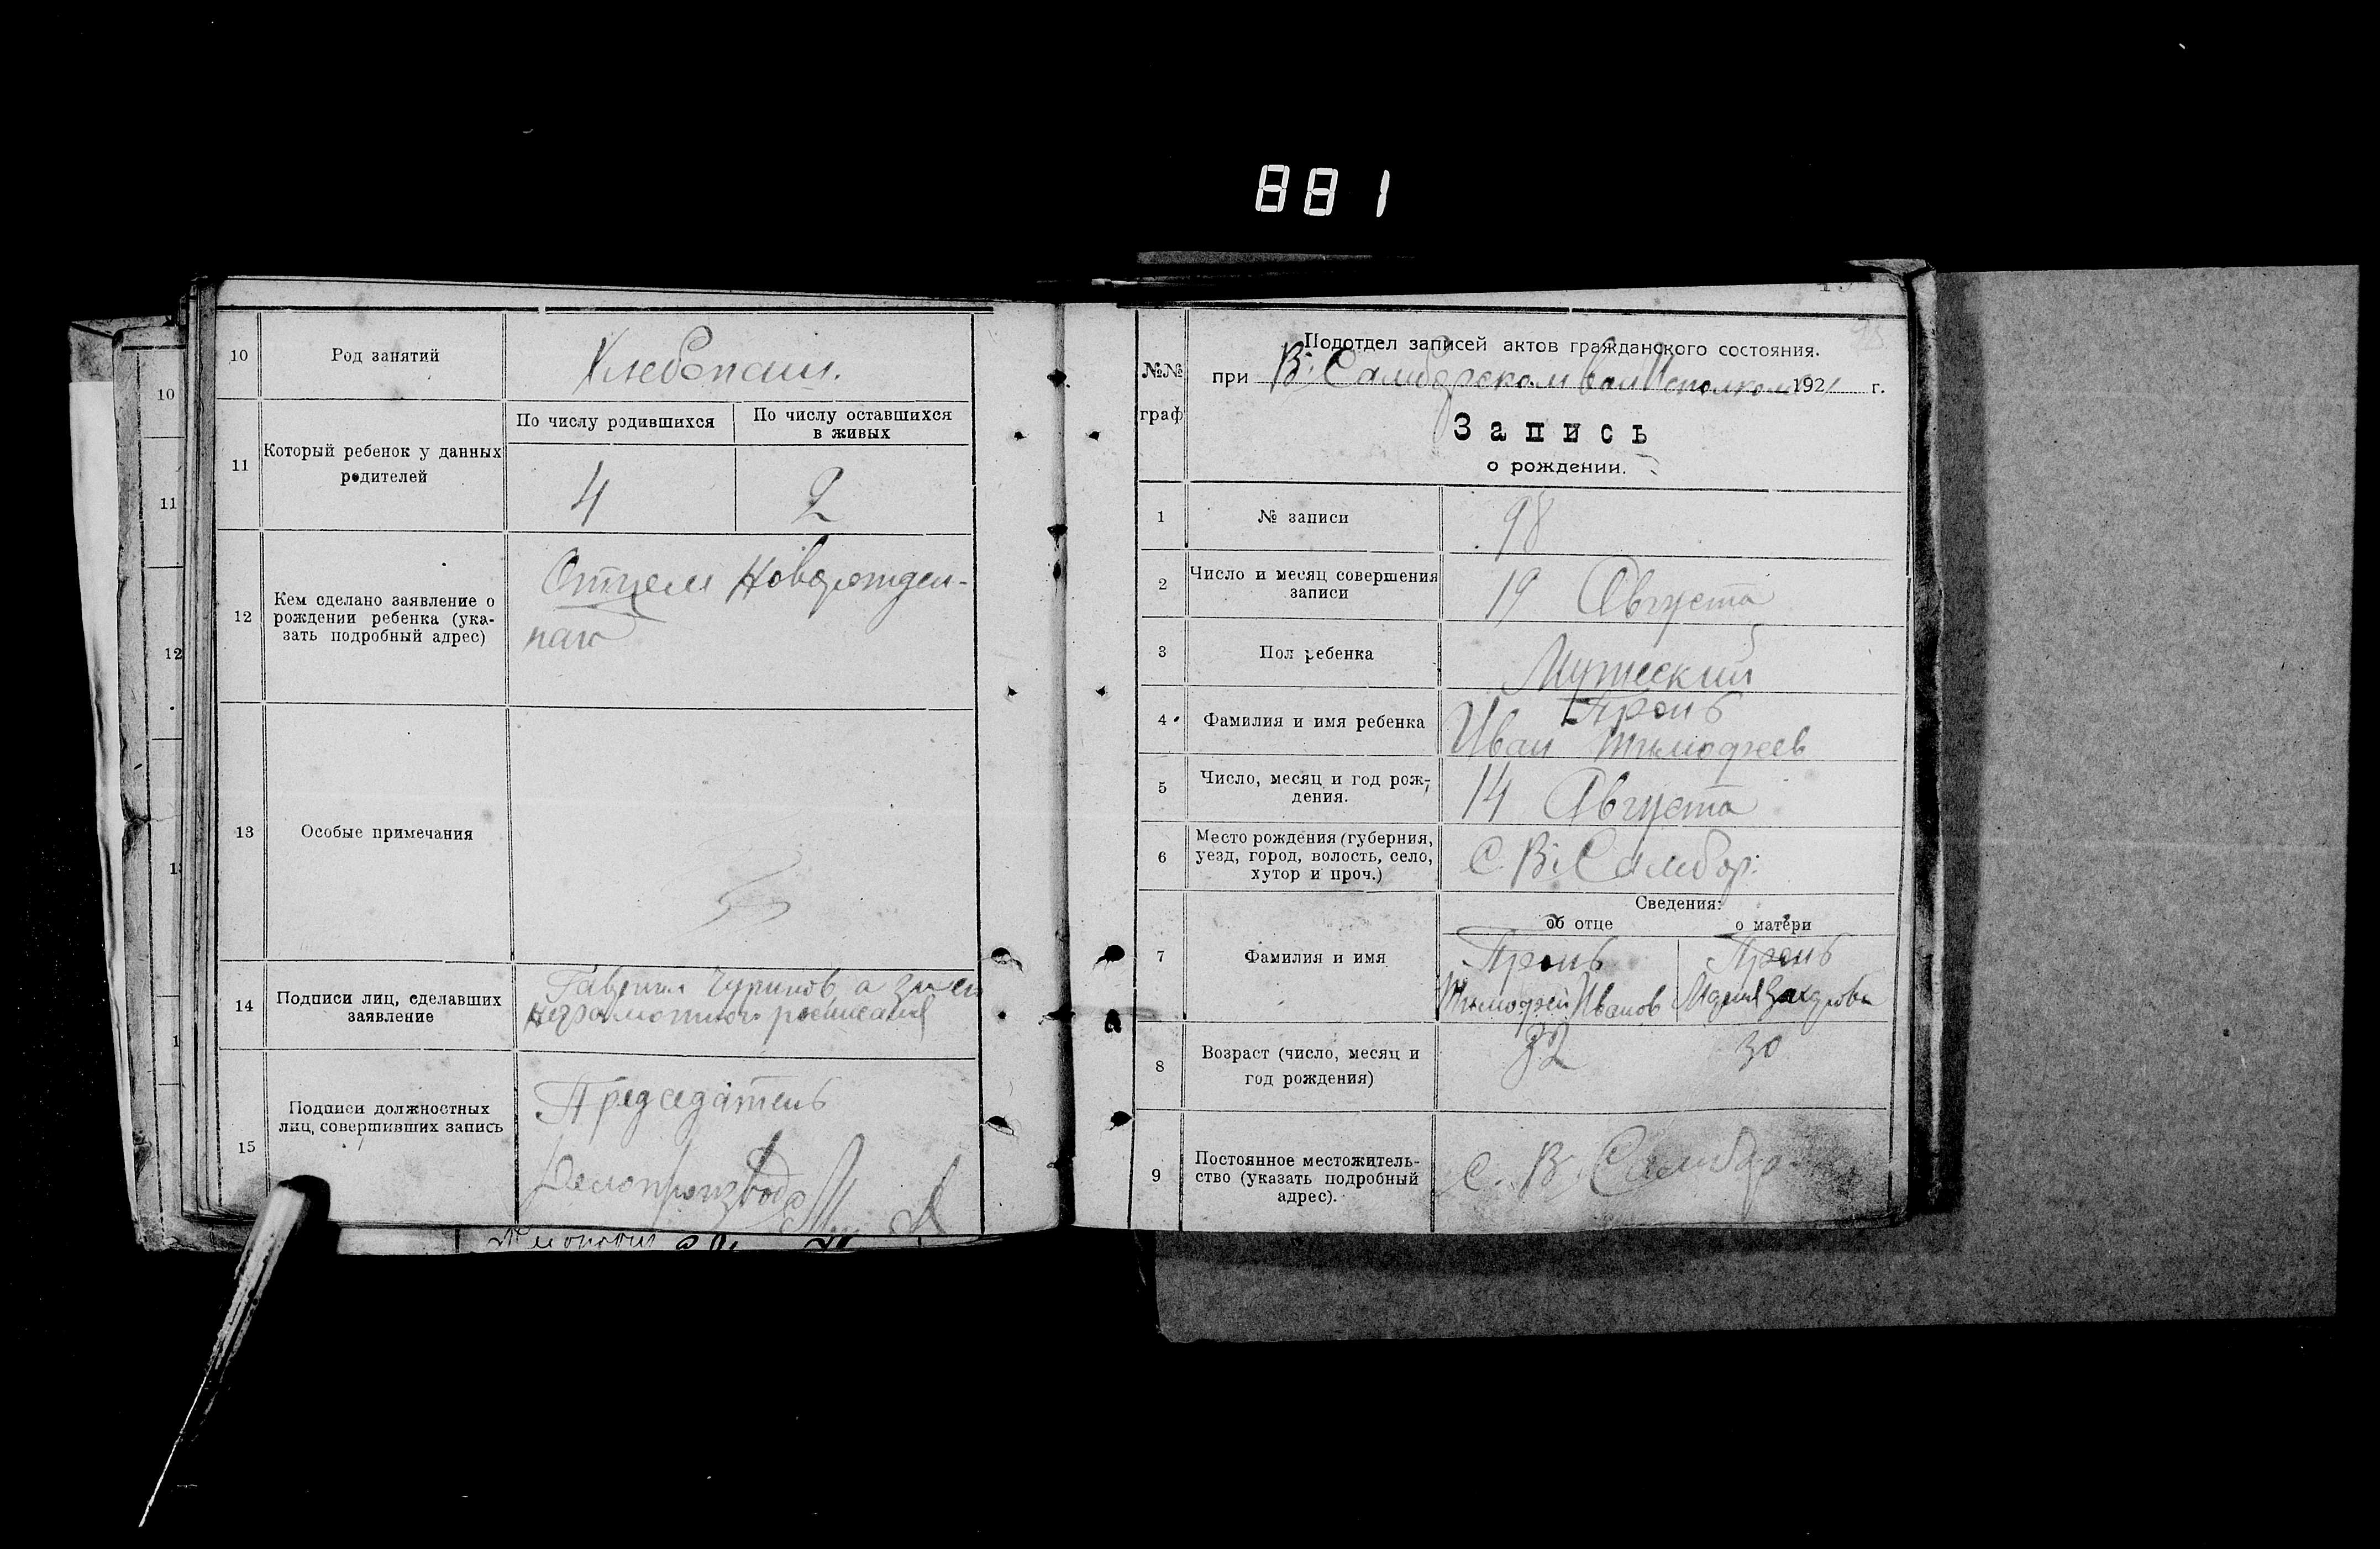 881
10
Род занятий
Хлебопаш.
11
Который ребенок у данных
родителей
По числу родившихся
По числу оставшихся
в живых
4
2
12
Кем сделано заявление о
рождении ребенка (ука-
зать подробный адрес)
Отцем Новорожден-
наго
13
Особые примечания
14
Подписи лиц, сделавших
заявление
Гавриил Чуринов, а за его
неграмотного росписался
15
Подписи должностных
лиц, совершивших запись
Председатель
Делопроизвод
10
11
12
№№
граф
Подотдел записей актов гражданского состояния.
при В. Самборском вол Исполкоме 1921 г.
Запись
о рождении.
1
№ записи
98
2
Число и месяц совершения
записи
19 Августа
3
Пол ребенка
Мужеский
4
Фамилия и имя ребенка
Пронь
Иван Тимофеев
5
Число, месяц и год рож-
дения.
14 Августа
6
Место рождения (губерния,
уезд, город, волость, село,
хутор и проч.)
С. В. Самбор:
Сведения:
об отце
о матери
7
Фамилия и имя
Пронь
Тимофей Иванов
Пронь
Мария Захарова
8
Возраст (число, месяц и
год рождения)
32
30
9
Постоянное местожитель-
ство (указать подробный
адрес).
с. В. Самбор.